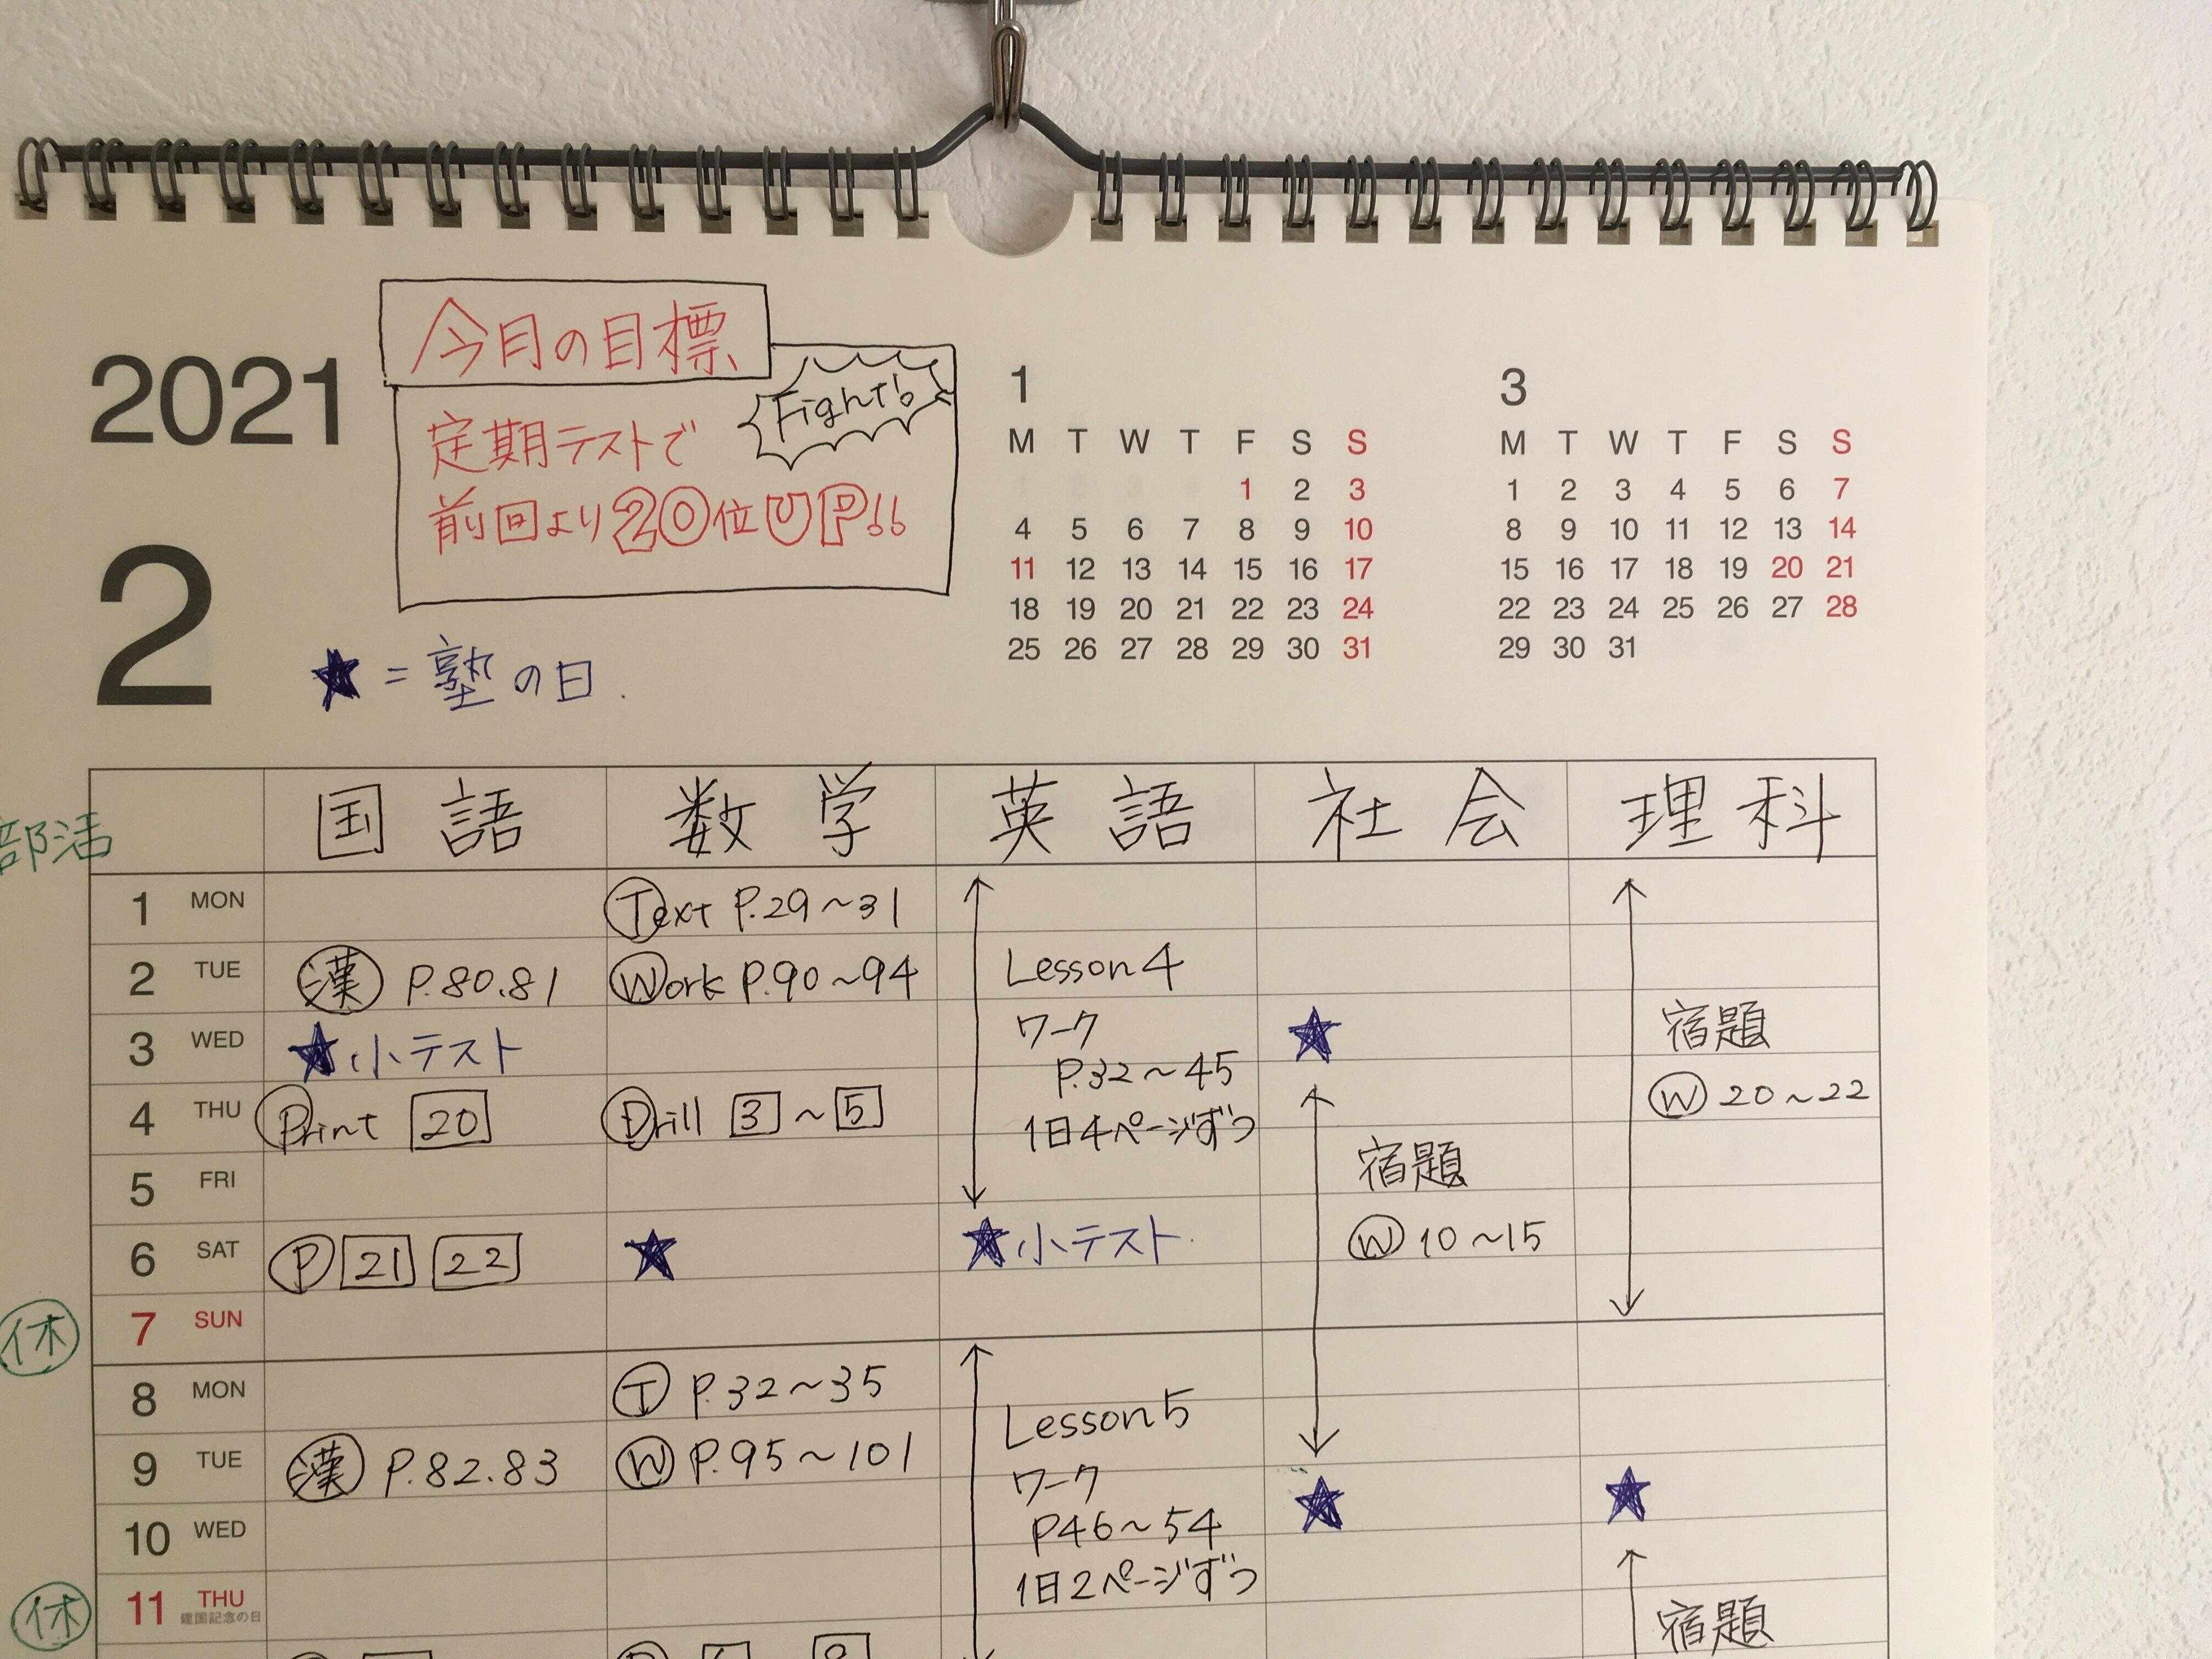 2021
2
今月の目標
Fight!
定期テストで
前回より20位UP!!
★=塾の日.
1
M T W T F S S
1 2 3
4 5 6 7 8 9 10
11 12 13 14 15 16 17
18 19 20 21 22 23 24
25 26 27 28 29 30 31
3
M T W T F S S
1 2 3 4 5 6 7
8 9 10 11 12 13 14
15 16 17 18 19 20 21
22 23 24 25 26 27 28
29 30 31
部活
国語 数学 英語 社会 理科
1 MON Text P.29~31
2 TUE 漢 P.80.81 Work P.90~94 Lesson4
3 WED ★小テスト ワーク ★ 宿題
P.32~45
4 THU Print 20 Drill 3~5 1日4ページずつ W 20~22
5 FRI 宿題
6 SAT P 21 22 ★ ★小テスト. W 10~15
休 7 SUN
8 MON T P.32~35 Lesson5
9 TUE 漢 P.82.83 W P.95~101 ワーク ★ ★
10 WED P46~54
休 11 THU 1日2ページずつ 宿題
建国記念の日